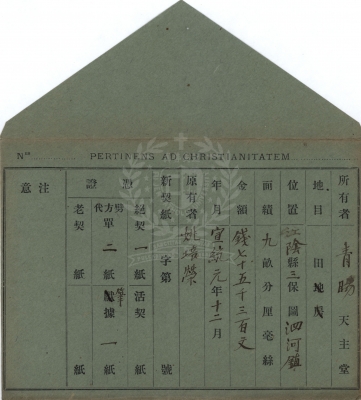 Nº PERTINENS AD CHRISTIANITATEM
所有者 青暘 天主堂
地目 田地
位置 江陰縣三保圖泗河鎮
面積 九畝分厘毫絲
金額 錢七十五千三百文
年月 宣統元年十二月
原有者 姚培榮
新契紙 字第 號
證
契一紙 活契 紙
代方單 二紙 據 一紙
老契 紙 紙
注意